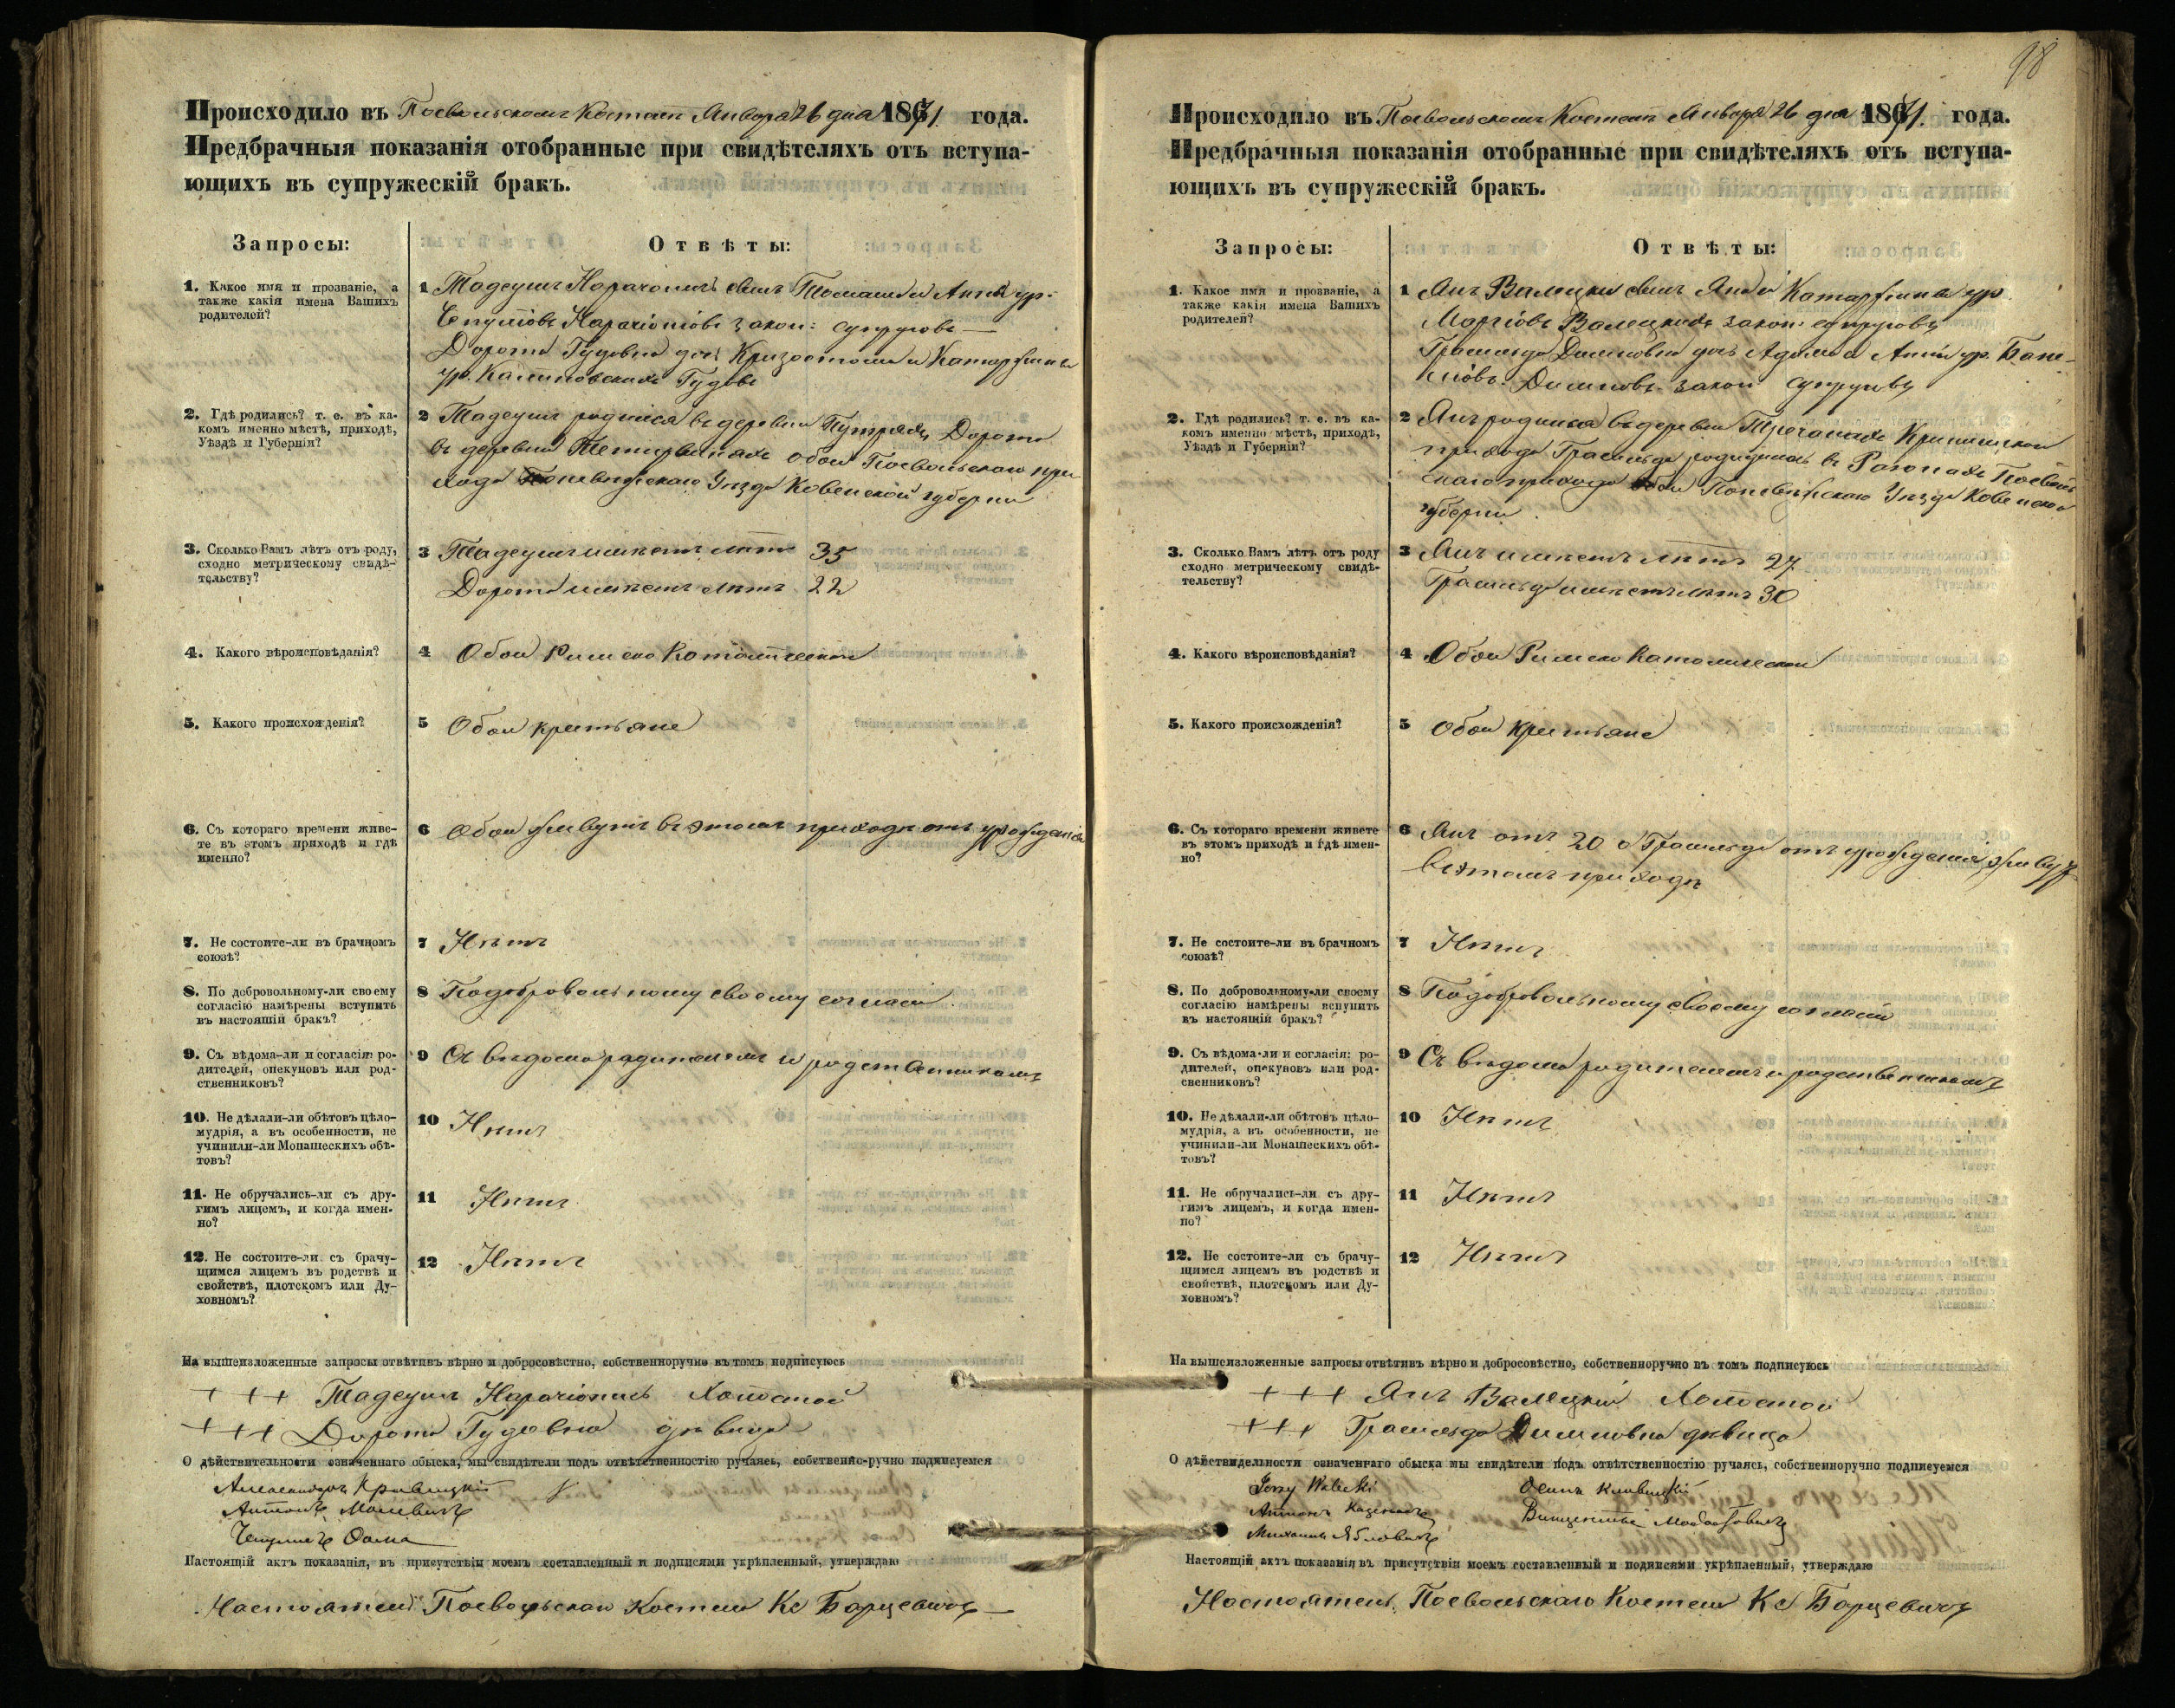 Происходило въ Поевольскомъ Костелѣ Января 26 дня 1871 года.
Предбрачныя показанія отобранные при свидѣтеляхъ отъ вступа-
ющихъ въ супружескій бракъ.
Запросы:
Отвѣты:
1. Какое имя и прозваніе, а
также какія имена Вашихъ
родителей?
1 Тадеушъ сынъ Томаша и Анны ур.
закон: супруговъ
Дорота Гудовна дочь Кризостома и Катаржины
ур. Гудовъ
2. Гдѣ родились? т. е. въ ка-
комъ именно мѣстѣ, приходѣ,
Уѣздѣ и Губерніи?
2 Тадеушъ родился въ деревни Дорота
въ деревни обои Поевольскаго при
хода Поневѣжскаго Уѣзда Ковенской губерни
3. Сколько Вамъ лѣтъ отъ роду,
сходно метрическому свидѣ-
тельству?
3 Тадеушъ имѣетъ лѣтъ 35
Дорота имѣетъ лѣтъ 22
4. Какого вѣроисповѣданія?
4 Обои Римско Католической
5. Какого происхожденія?
5 Обои крестьяне
6. Съ котораго времени живе-
те въ этомъ приходѣ и гдѣ
именно?
6 Обои живутъ въ этомъ приходѣ отъ урожденія
7. Не состоите-ли въ брачномъ
союзѣ?
7 Нѣтъ
8. По добровольному-ли своему
согласію намѣрены вступить
въ настоящій бракъ?
8 По добровольному своему согласи
9. Съ вѣдома-ли и согласія: ро-
дителей, опекуновъ или род-
ственниковъ?
9 Съ вѣдома родителямъ и родственникамъ
10. Не дѣлали-ли обѣтовъ цѣло-
мудрія, а въ особенности, не
учинили-ли Монашескихъ обѣ-
товъ?
10 Нѣтъ
11. Не обручались-ли съ дру-
гимъ лицемъ, и когда имен-
но?
11 Нѣтъ
12. Не состоите-ли съ брачу-
щимся лицемъ въ родствѣ и
свойствѣ, плотскомъ или Ду-
ховномъ?
12 Нѣтъ
На вышеизложенные запросы отвѣтивъ вѣрно и добросовѣстно, собственноручно въ томъ подписуюсь
+++ Тадеушъ Холостой
+++ Дорота Гудовна дѣвица
О дѣйствительности означеннаго обыска, мы свидѣтели подъ отвѣтственностію ручаясь, собственно-ручно подписуемся
Александръ
Антонъ
Настоящій актъ показанія, въ присутствіи моемъ составленный и подписями укрѣпленный, утверждаю
Настоятель Поевольскаго Костела Кс Барцевичъ
98
Происходило въ Поевольскомъ Костелѣ Января 26 дня 1871. года.
Предбрачныя показанія отобранные при свидѣтеляхъ отъ вступа-
ющихъ въ супружескій бракъ.
Запросы:
Отвѣты:
1. Какое имя и прозваніе, а
также какія имена Вашихъ
родителей?
1 Янъ Валецки сынъ Яна и Катаржины ур.
Валецкихъ закон: супруговъ
Грасильда Димповна дочь Адама и Анны ур.
закон: супруговъ
2. Гдѣ родились? т. е. въ ка-
комъ именно мѣстѣ, приходѣ,
Уѣздѣ и Губерніи?
2 Янъ родился въ деревни
прихода Грасильда родилась в Поеволь
скаго прихода обои Поневѣжскаго Уѣзда Ковенской
губерни
3. Сколько Вамъ лѣтъ отъ роду
сходно метрическому свидѣ-
тельству?
3 Янъ имѣетъ лѣтъ 27
Грасильда имѣетъ лѣтъ 30
4. Какого вѣроисповѣданія?
4 Обои Римско Католической
5. Какого происхожденія?
5 Обои крестьяне
6. Съ котораго времени живете
въ этомъ приходѣ и гдѣ имен-
но?
6 Янъ отъ 20 а Грасильда отъ урожденія живут
въ этомъ приходѣ
7. Не состоите-ли въ брачномъ
союзѣ?
7 Нѣтъ
8. По добровольному-ли своему
согласію намѣрены вспупить
въ настоящій бракъ?
8 По добровольному своему согласи
9. Съ вѣдома-ли и согласія: ро-
дителей, опекуновъ или род-
свенниковъ?
9 Съ вѣдома родителямъ и родственникамъ
10. Не дѣлали-ли обѣтовъ цѣло-
мудрія, а въ особенности, не
учинили-ли Монашескихъ обѣ-
товъ?
10 Нѣтъ
11. Не обручались-ли съ дру-
гимъ лицемъ, и когда имен-
но?
11 Нѣтъ
12. Не состоите-ли съ брачу-
щимся лицемъ въ родствѣ и
свойствѣ, плотскомъ или Ду-
ховномъ?
12 Нѣтъ
На вышеизложенные запросы отвѣтивъ вѣрно и добросовѣстно, собственноручно въ томъ подписуюсь
+++ Янъ Валецкій Холостой
+++ Грасильда Димповна дѣвица
О дѣйствидельности означеннаго обыска мы свидѣтели подъ отвѣтственностію ручаясь, собственноручно подписуемся
Jerzy Walecki
Осипъ
Антонъ
Винцентъ
Михаилъ
Настоящій актъ показанія въ присутствіи моемъ составленный и подписями укрѣпленный, утверждаю
Настоятель Поевольскаго Костела Кс Барцевичъ